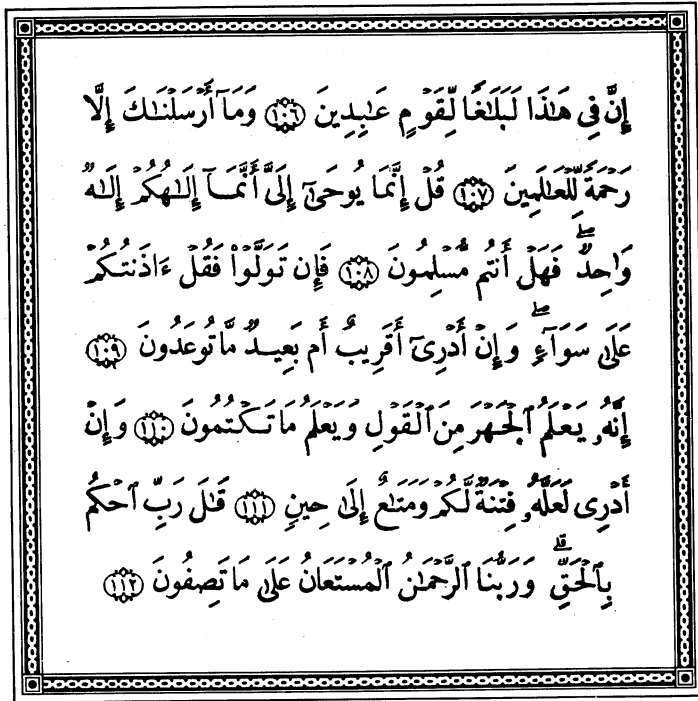 إِنَّ فِي هَٰذَا لَبَلَٰغًا لِّقَوْمٍ عَٰبِدِينَ ١٠٦ وَمَآ أَرْسَلْنَٰكَ إِلَّا
رَحْمَةً لِّلْعَٰلَمِينَ ١٠٧ قُلْ إِنَّمَا يُوحَىٰٓ إِلَىَّ أَنَّمَآ إِلَٰهُكُمْ إِلَٰهٌ
وَٰحِدٌ ۖ فَهَلْ أَنتُم مُّسْلِمُونَ ١٠٨ فَإِن تَوَلَّوْا۟ فَقُلْ ءَاذَنتُكُمْ
عَلَىٰ سَوَآءٍ ۖ وَإِنْ أَدْرِىٓ أَقَرِيبٌ أَم بَعِيدٌ مَّا تُوعَدُونَ ١٠٩
إِنَّهُۥ يَعْلَمُ ٱلْجَهْرَ مِنَ ٱلْقَوْلِ وَيَعْلَمُ مَا تَكْتُمُونَ ١١٠ وَإِنْ
أَدْرِى لَعَلَّهُۥ فِتْنَةٌ لَّكُمْ وَمَتَٰعٌ إِلَىٰ حِينٍ ١١١ قَٰلَ رَبِّ ٱحْكُم
بِٱلْحَقِّ ۗ وَرَبُّنَا ٱلرَّحْمَٰنُ ٱلْمُسْتَعَانُ عَلَىٰ مَا تَصِفُونَ ١١٢